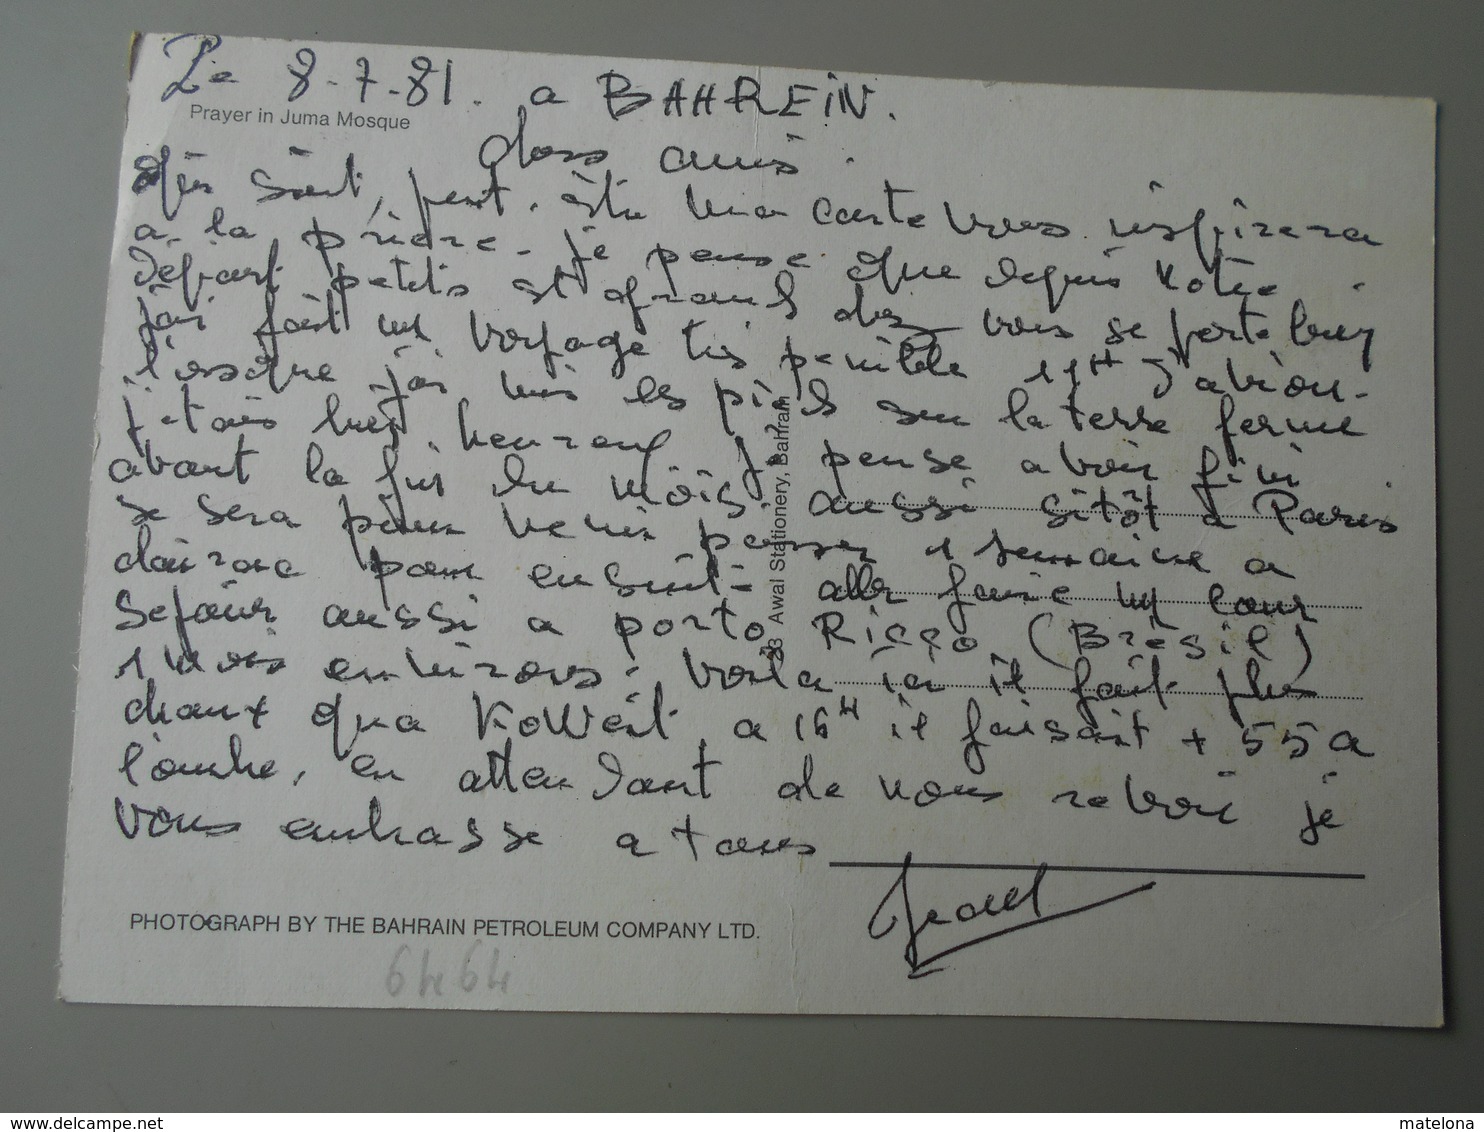 Le 8-7-81. a BAHREIN.
Prayer in Juma Mosque
Gross amis.
Qui sait, peut-être ma carte vous inspirera
a la prière. je pense que depuis votre
départ petits et grands chez vous se porte bien
j'ai fait un voyage très penible 11H d'avion.
l'orsque j'ai mis les pieds sur la terre ferme
j'etais bien heureux je pense avoir fini
avant la fin du mois. aussi sitôt a Paris
se sera pour venir passer 1 semaine a
clairac pour ensuite aller faire un cour
sejour aussi a porto Ricco (Brésil)
1 mois environs. Voila ici il fait plus
chaux qua KoWeit, a 16H il faisait + 55 a
l'ombre, en attendant de vous revoir je
vous embrasse a tous
38 Awal Stationery, Bahrain
PHOTOGRAPH BY THE BAHRAIN PETROLEUM COMPANY LTD.
6464
www.delcampe.net
matelona